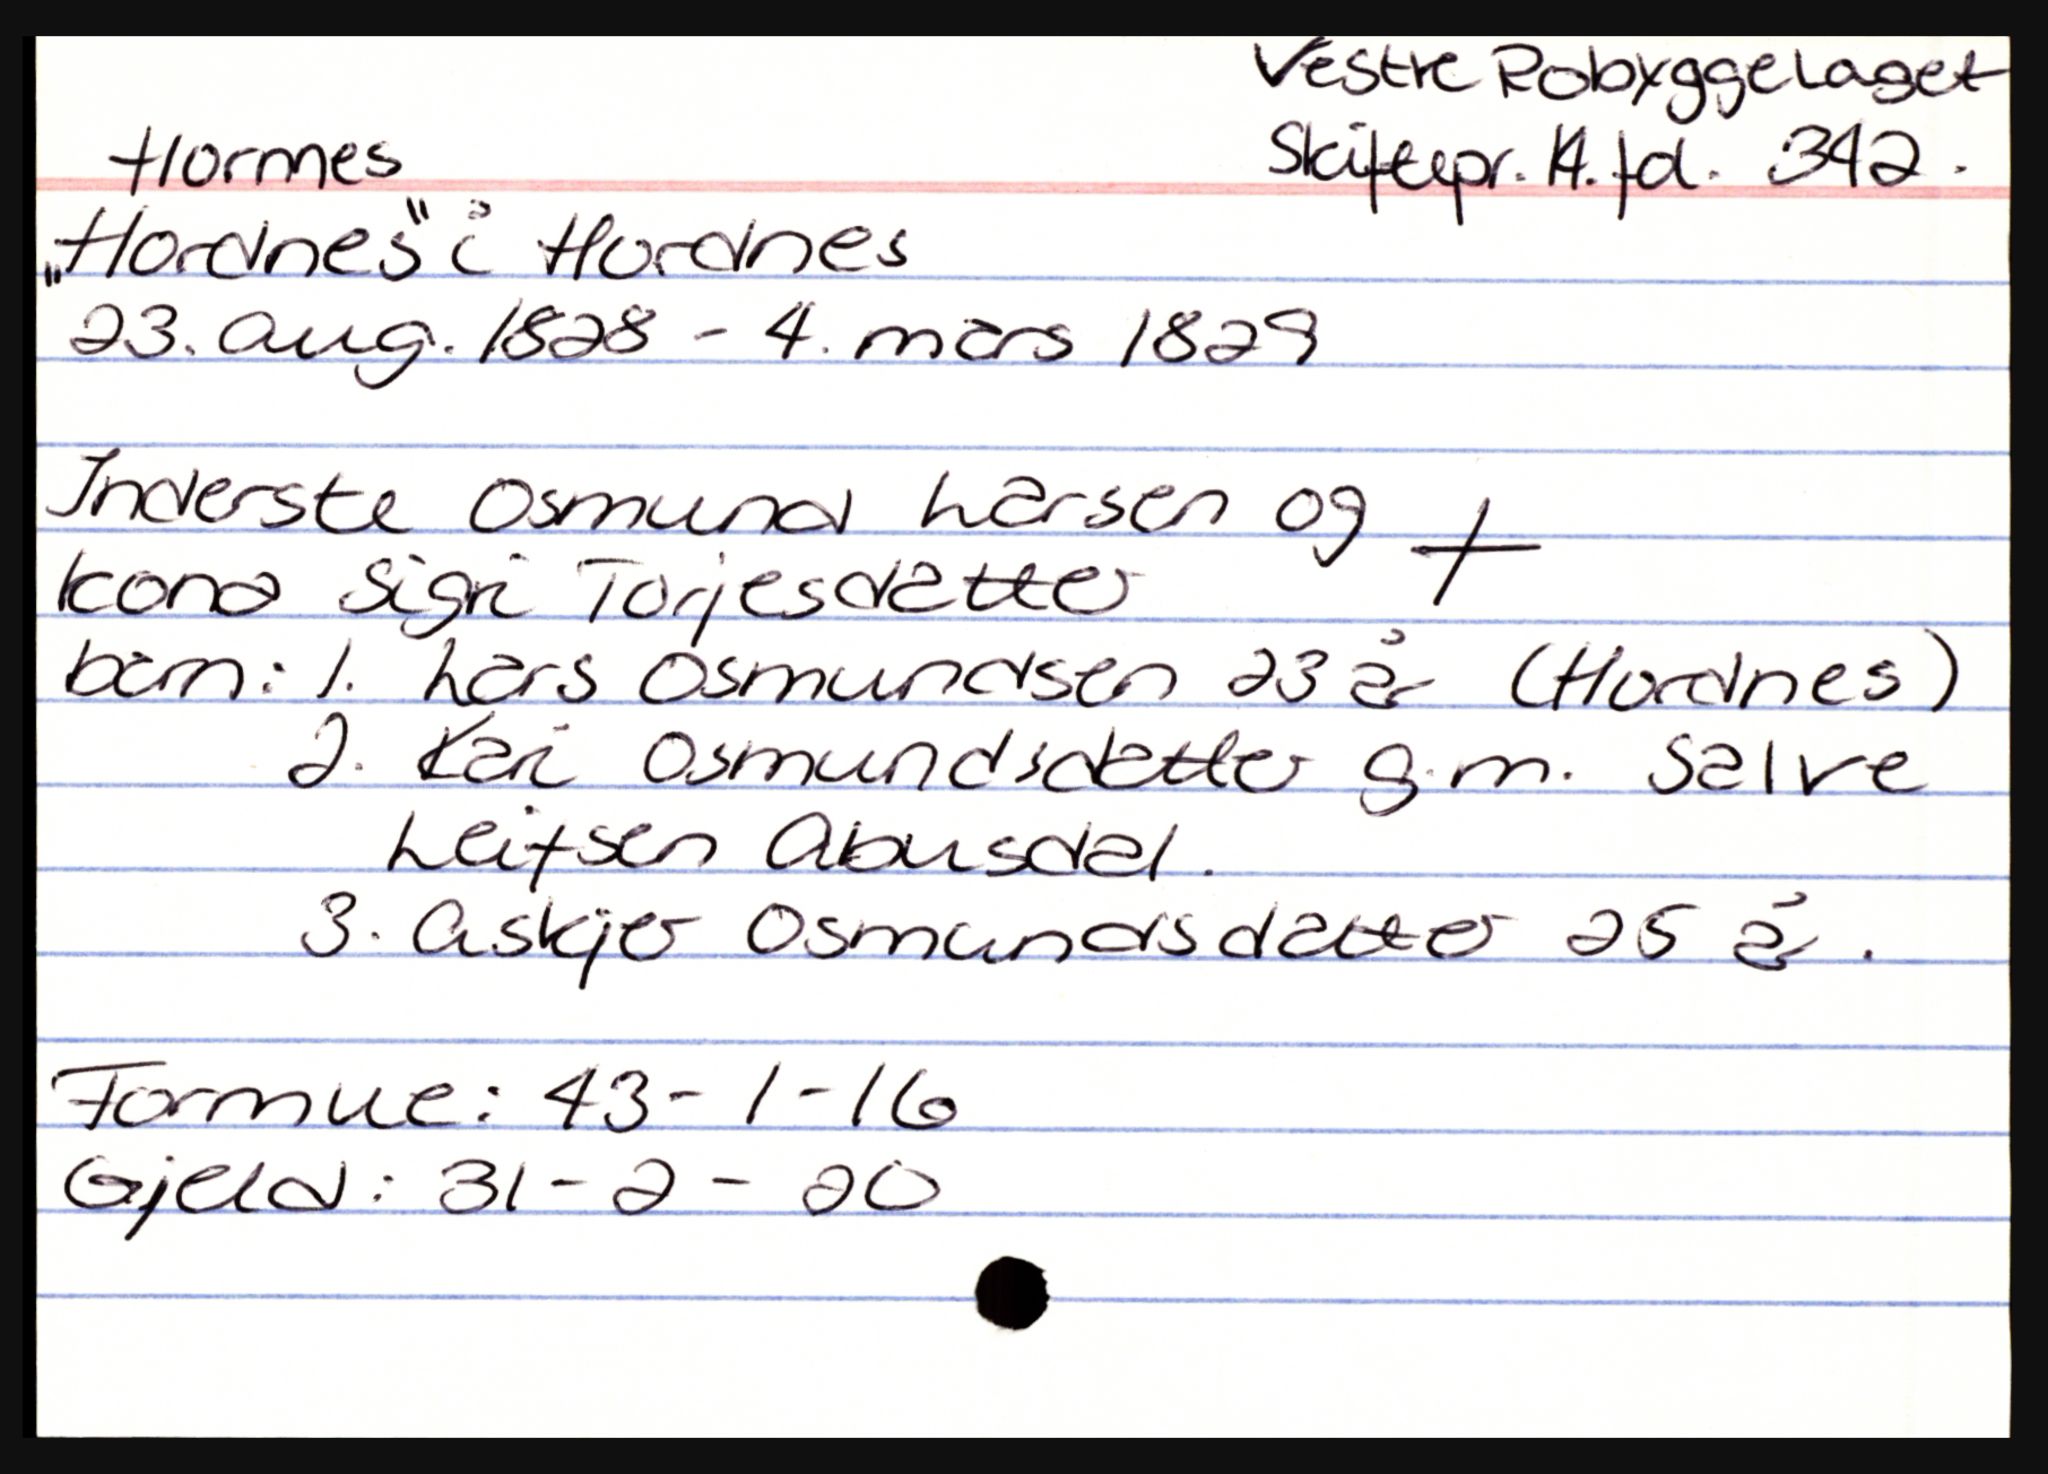 Vestre Robyggelaget
Skiftepr. 14. fol. 342.
Hornnes
"Hordnes" i Hordnes
23. aug. 1828 - 4. mars 1829
Inderste Osmund Larsen og +
kona Sigri Torjesdatter
barn: 1. Lars Osmundsen 23 år (Hordnes)
2. Kari Osmundsdatter g.m. Salve
Leifsen Abusdal.
3. Askjer Osmundsdatter 25 år.
Formue: 43 - 1 - 16
Gjeld: 31 - 2 - 20